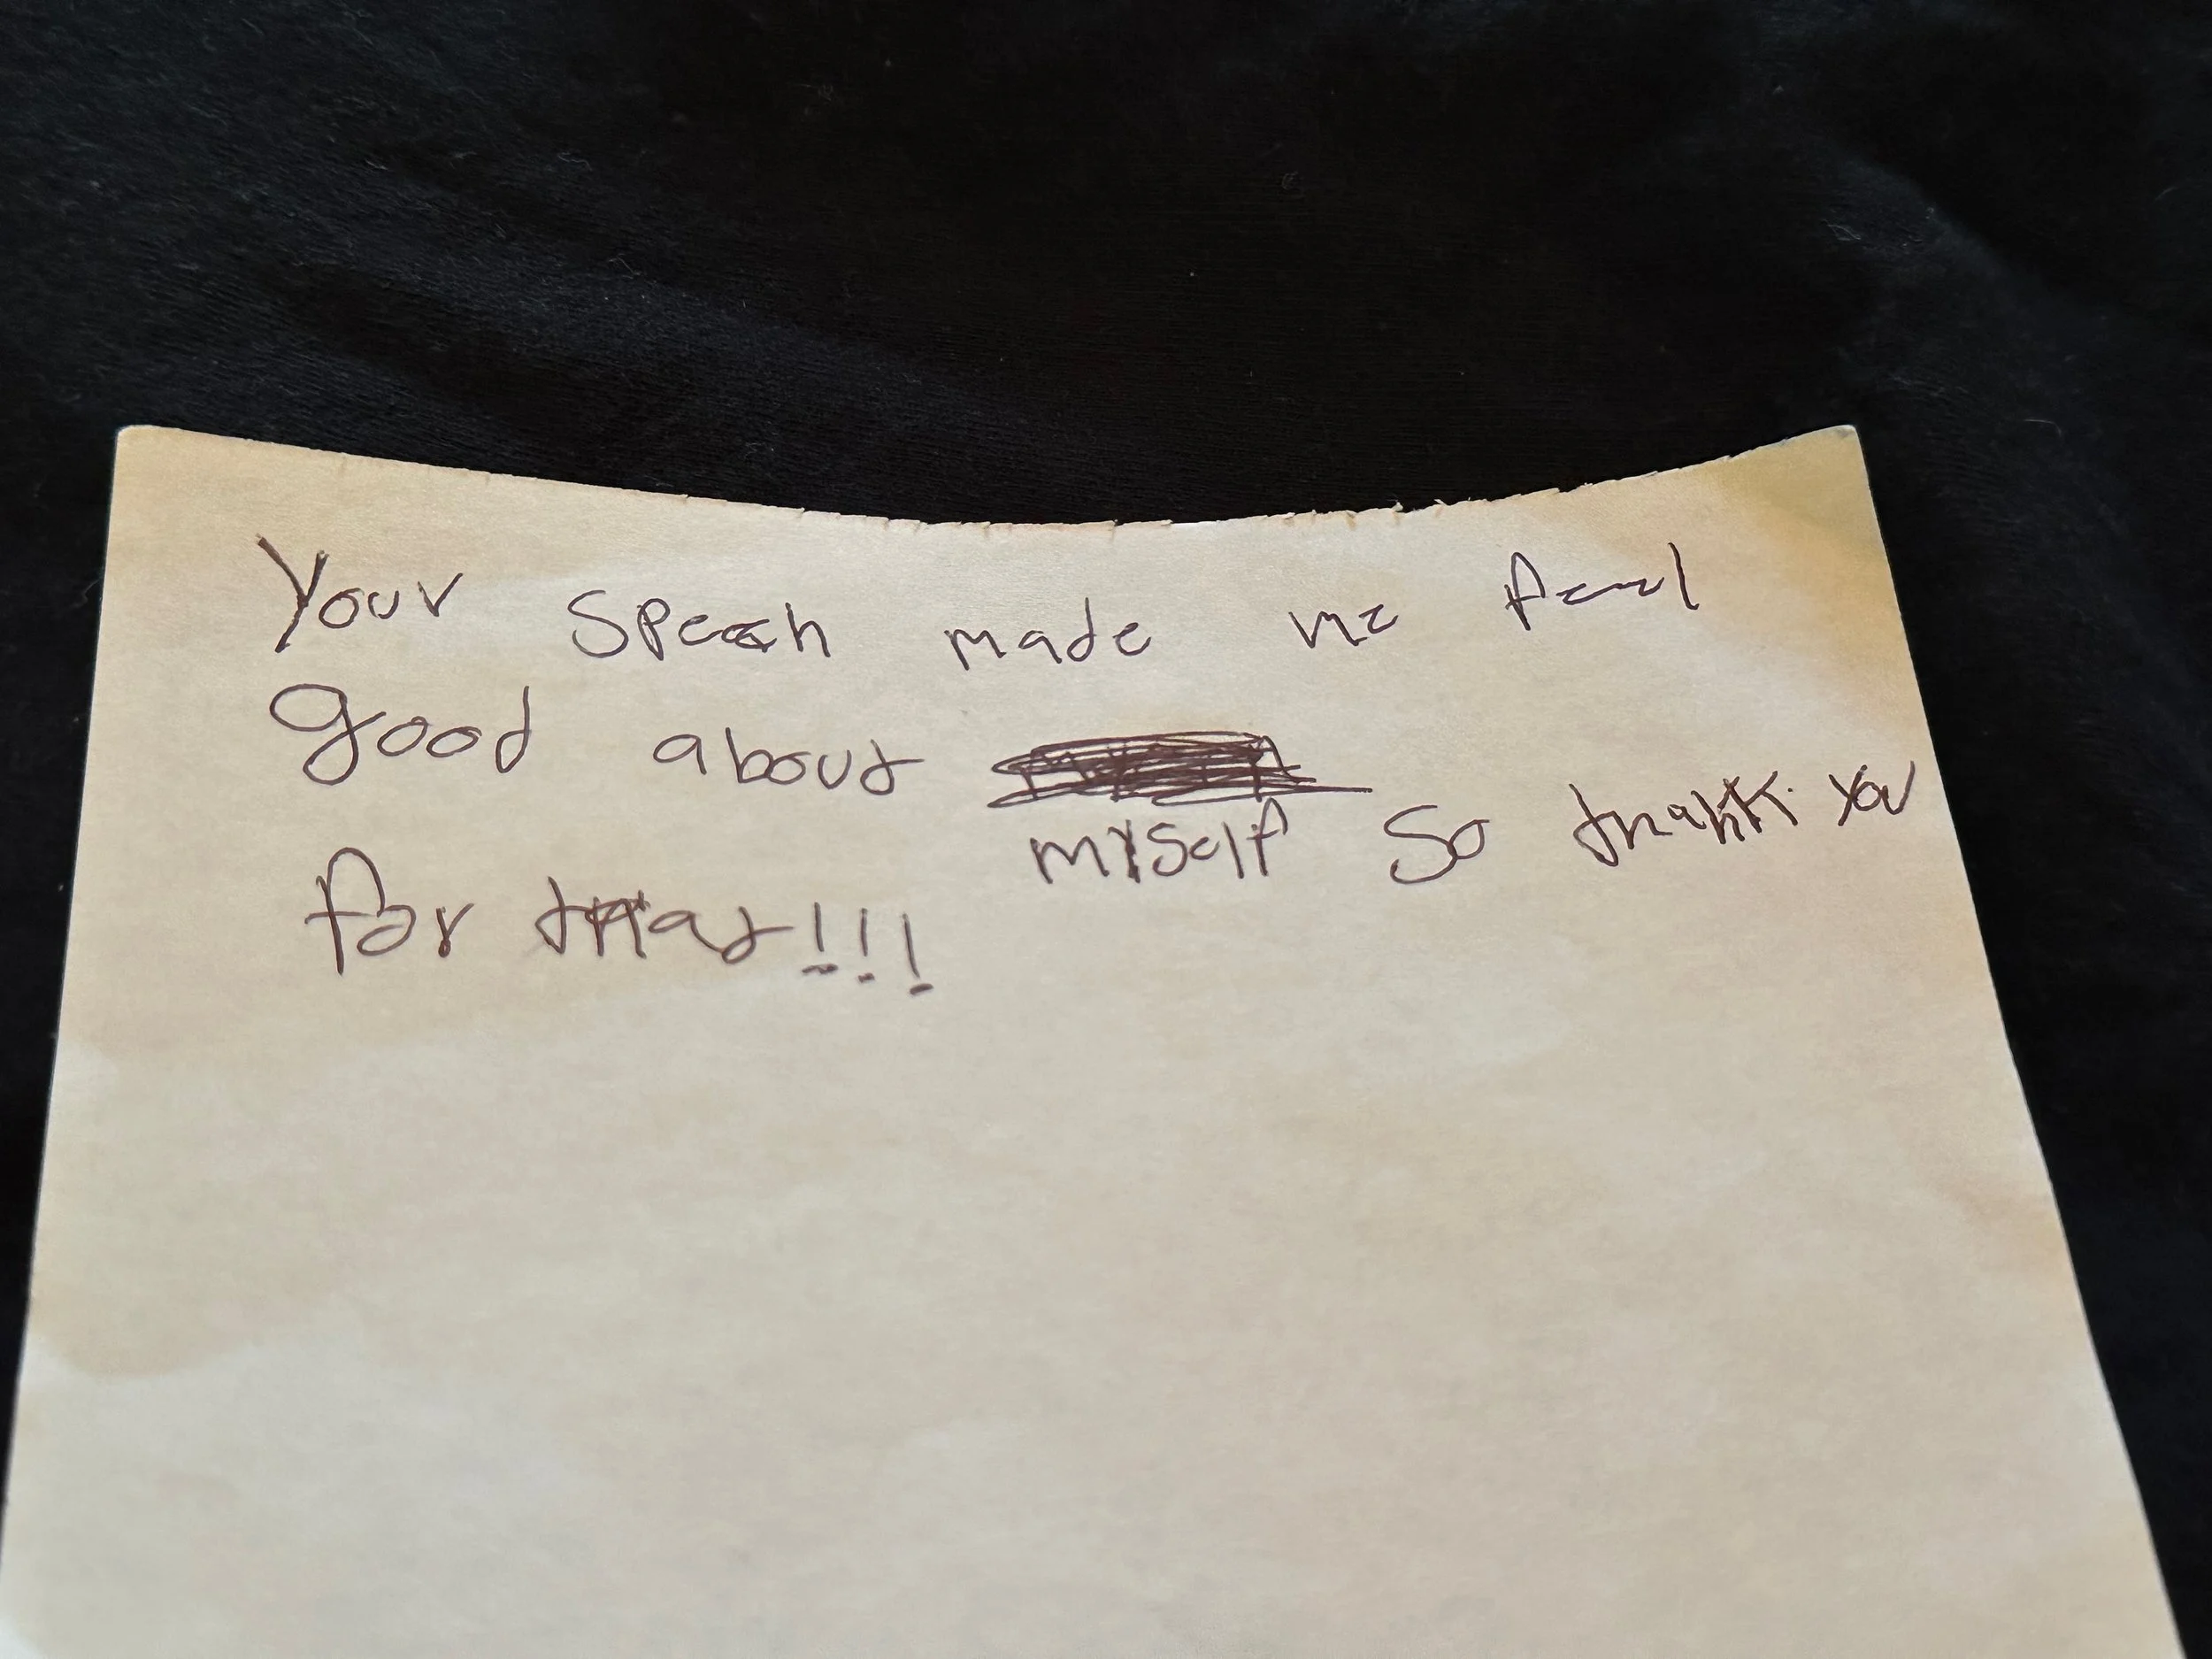 Your speech made me feel
good about
myself so thank you
for that!!!